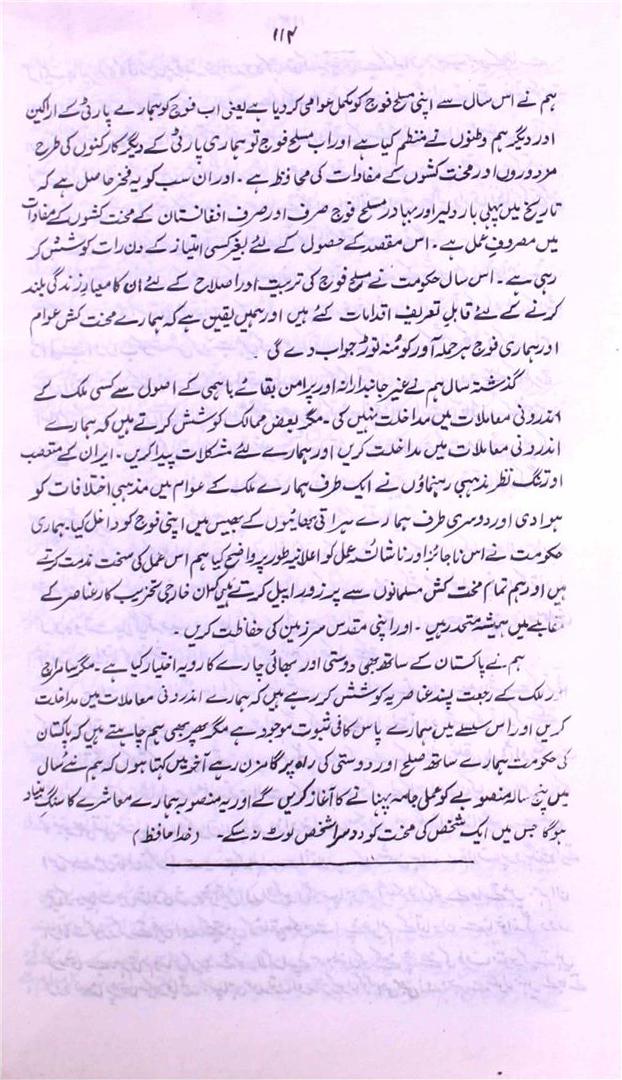 ۱۱۴
ہم نے اس سال سے اپنی مسلح فوج کو مکمل عوامی کر دیا ہے یعنی اب فوج کو ہمارے پارٹی کے اراکین
اور دیگر ہم وطنوں نے منظم کیا ہے اور اب مسلح فوج تو ہماری پارٹی کے دیگر کارکنوں کی طرح
مزدوروں اور محنت کشوں کے مفادات کی محافظ ہے ۔ اور ان سب کو یہ فخر حاصل ہے کہ
تاریخ میں پہلی بار دلیر اور بہادر مسلح فوج صرف اور صرف افغانستان کے محنت کشوں کے مفادات
میں مصروفِ عمل ہے ۔ اس مقصد کے حصول کے لئے بغیر کسی امتیاز کے دن رات کوشش کر
رہی ہے ۔ اس سال حکومت نے مسلح فوج کی تربیت اور اصلاح کے لئے ان کا معیارِ زندگی بلند
کرنے کے لئے قابلِ تعریف اقدامات کئے ہیں اور ہمیں یقین ہے کہ ہمارے محنت کش عوام
اور ہماری فوج ہر حملہ آور کو منہ توڑ جواب دے گی ۔
گذشتہ سال ہم نے غیر جانبدارانہ اور پرامن بقائے باہمی کے اصول سے کسی ملک کے
اندرونی معاملات میں مداخلت نہیں کی ۔ مگر بعض ممالک کوشش کرتے ہیں کہ ہمارے
اندرونی معاملات میں مداخلت کریں اور ہمارے لئے مشکلات پیدا کریں ۔ ایران کے متعصب
اور تنگ نظر مذہبی رہنماؤں نے ایک طرف ہمارے ملک کے عوام میں مذہبی اختلافات کو
ہوا دی اور دوسری طرف ہمارے ہراتی بھائیوں کے بھیس میں اپنی فوج کو داخل کیا ۔ ہماری
حکومت نے اس ناجائز اور ناشائستہ عمل کو اعلانیہ طور پر واضح کیا ہم اس عمل کی سخت مذمت کرتے
ہیں اور ہم تمام محنت کش مسلمانوں سے پر زور اپیل کرتے ہیں کہ ان خارجی تخریب کار عناصر کے
مقابلے میں ہمیشہ متحد رہیں ۔ اور اپنی مقدس سرزمین کی حفاظت کریں ۔
ہم نے پاکستان کے ساتھ بھی دوستی اور بھائی چارے کا رویہ اختیار کیا ہے ۔ مگر سامراج
اور ملک کے رجعت پسند عناصر یہ کوشش کر رہے ہیں کہ ہمارے اندرونی معاملات میں مداخلت
کریں اور اس سلسلے میں ہمارے پاس کافی ثبوت موجود ہے مگر پھر بھی ہم چاہتے ہیں کہ پاکستان
کی حکومت ہمارے ساتھ صلح اور دوستی کی راہ پر گامزن رہے آخر میں کہتا ہوں کہ ہم نئے سال
میں پنج سالہ منصوبے کو عملی جامہ پہنانے کا آغاز کریں گے اور یہ منصوبہ ہمارے معاشرے کا سنگ بنیاد
ہوگا جس میں ایک شخص کی محنت کو دوسرا شخص لوٹ نہ سکے ۔ (خدا حافظ)